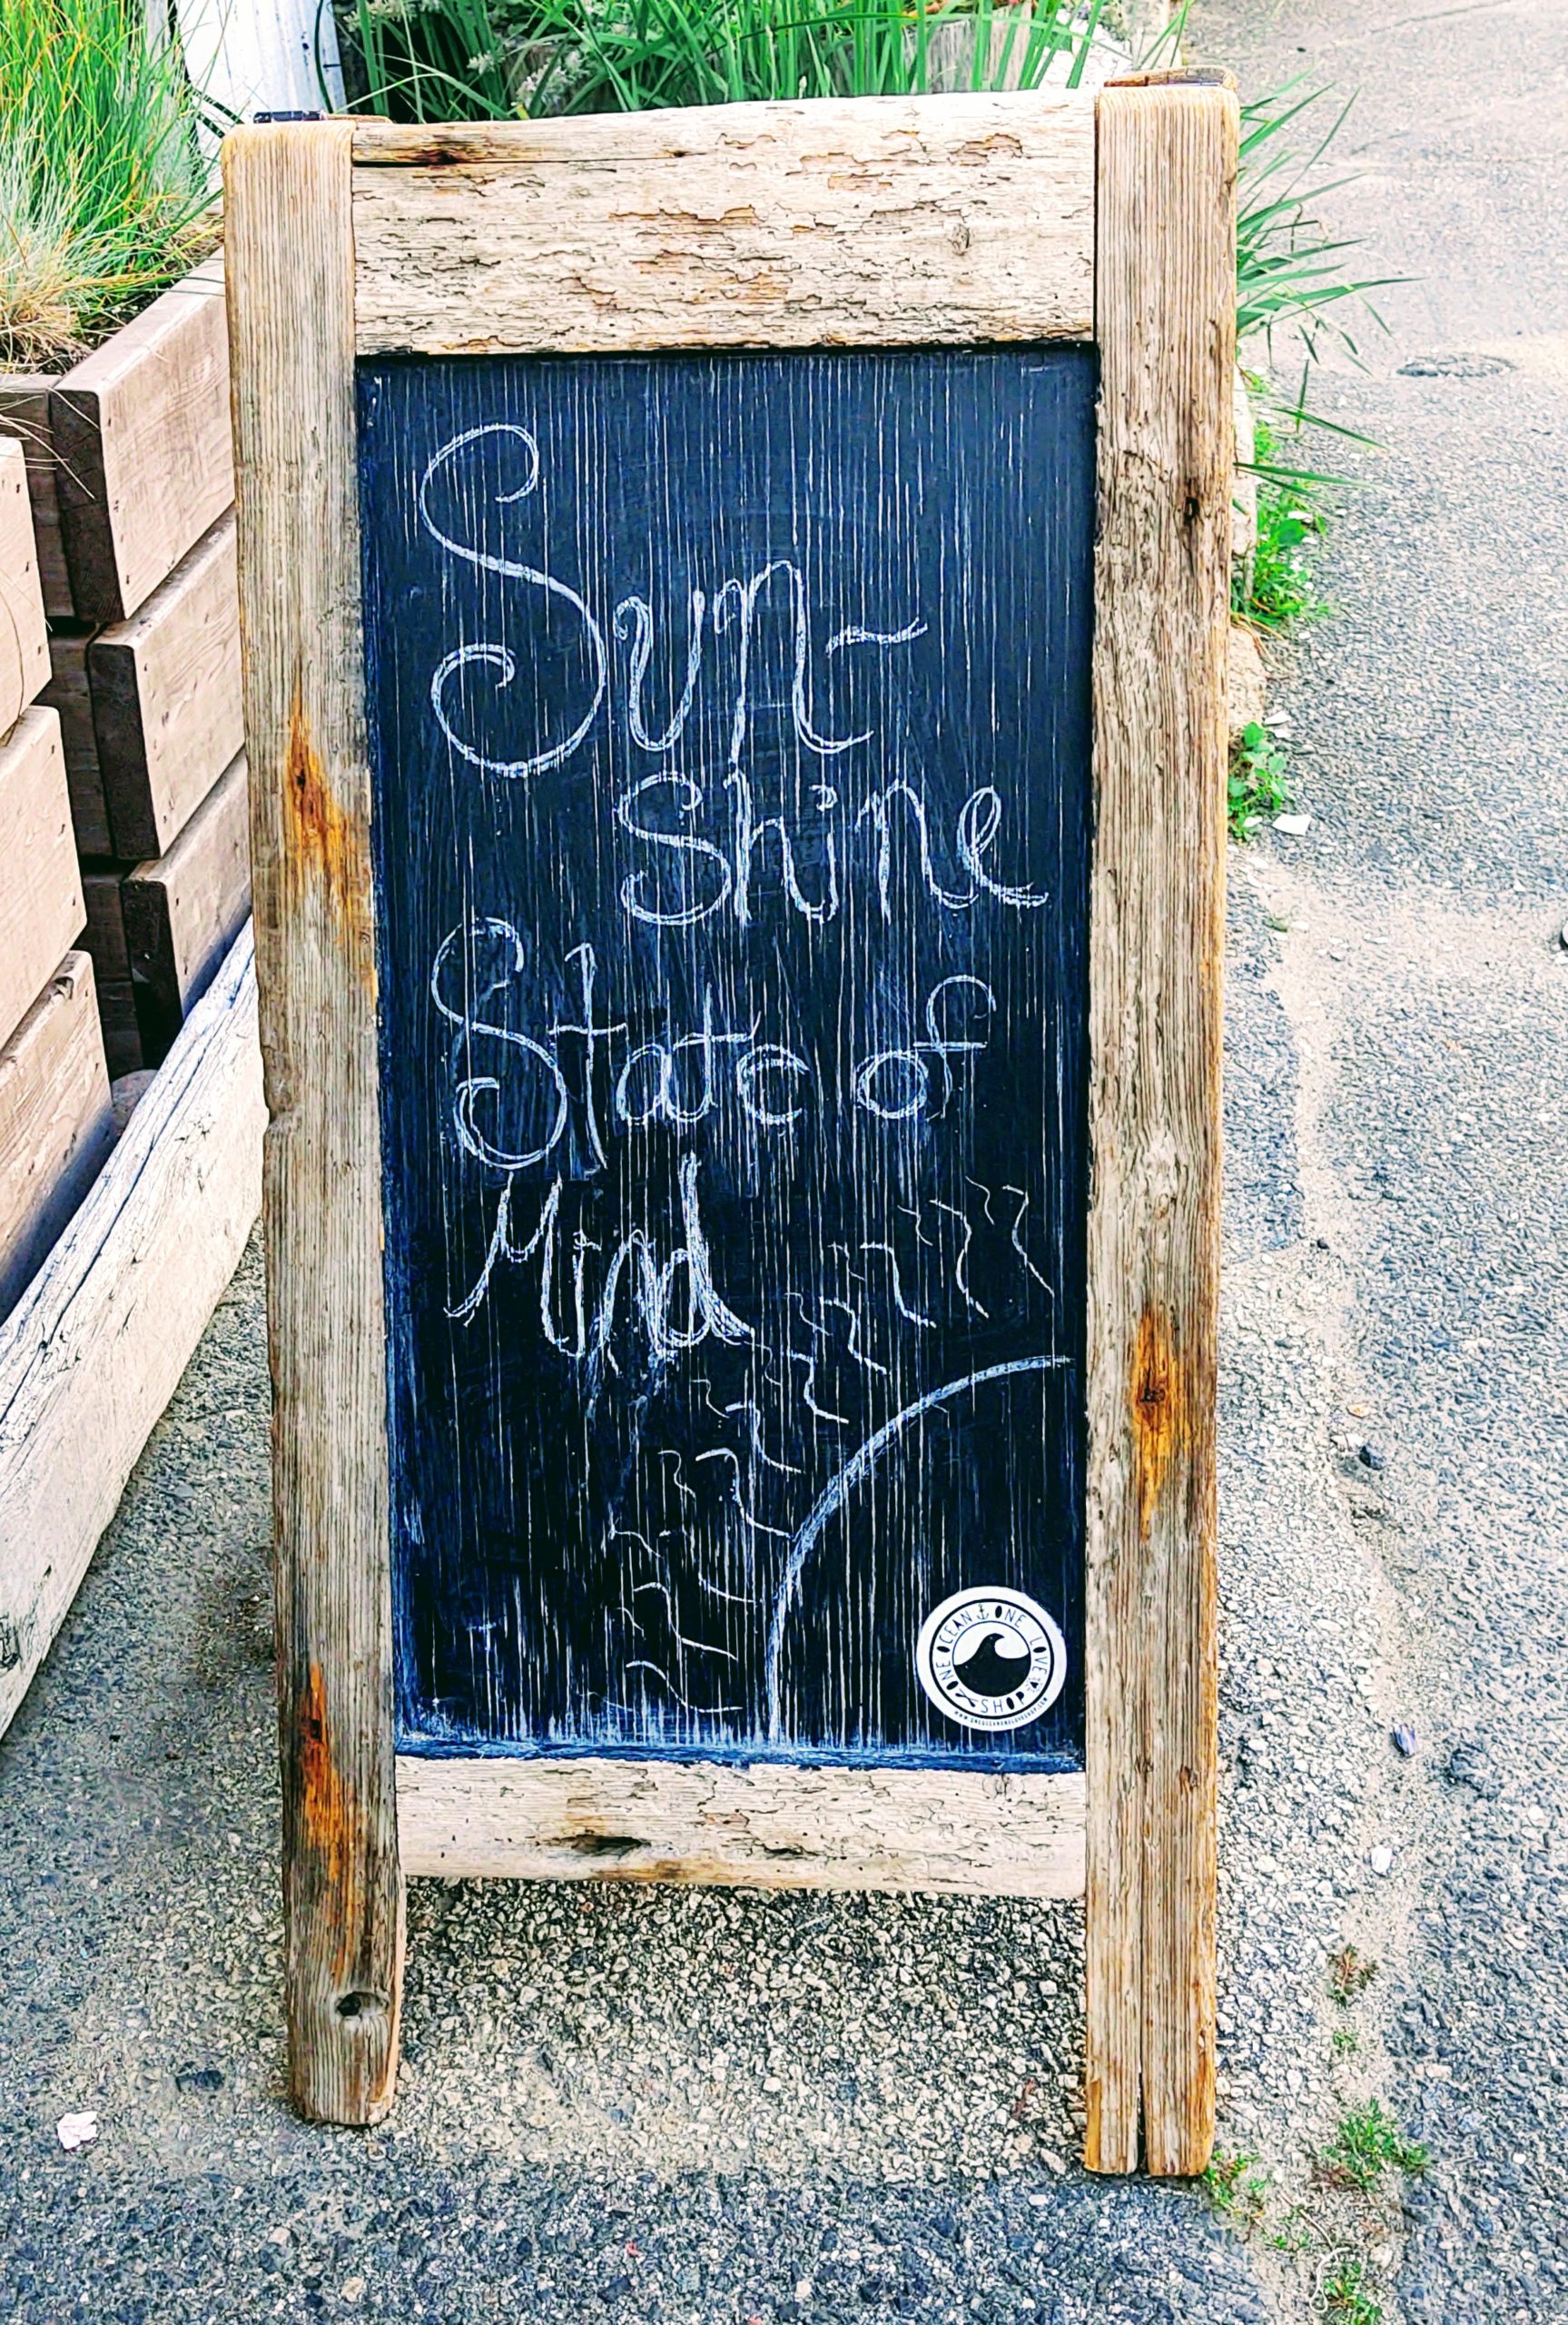 Sun-
Shine
State of
Mind
ONE OCEAN ONE LOVE
SHOP